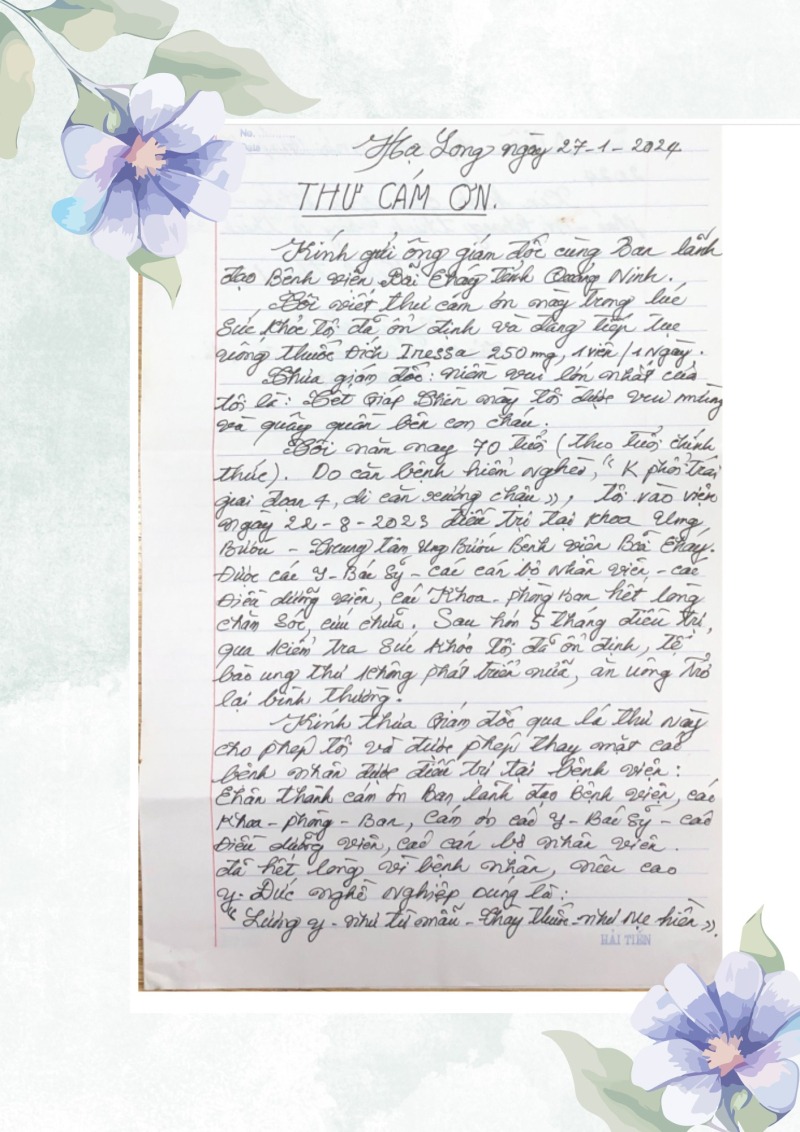 No.
Hạ Long ngày 27-1-2024
THƯ CẢM ƠN.
Kính gửi ông giám đốc cùng Ban lãnh
đạo Bệnh viện Bãi Cháy tỉnh Quảng Ninh.
Tôi viết thư cảm ơn này trong lúc
sức khỏe tôi đã ổn định và đang tiếp tục
uống thuốc Đích Iressa 250mg, 1 viên / 1 Ngày.
Thưa giám đốc: niềm vui lớn nhất của
tôi là: Tết Giáp Thìn này tôi được vui mừng
và quây quần bên con cháu.
Tôi năm nay 70 tuổi (theo tuổi chính
thức). Do căn bệnh hiểm nghèo, "K phổi trái
giai đoạn 4, di căn xương chậu", tôi vào viện
ngày 22-8-2023 điều trị tại khoa Ung
Bướu - Trung tâm Ung Bướu Bệnh viện Bãi Cháy.
Được các Y-Bác Sỹ - các cán bộ Nhân viên - các
Điều dưỡng viên, các Khoa - phòng Ban hết lòng
chăm sóc, cứu chữa. Sau hơn 5 tháng điều trị,
qua kiểm tra sức khỏe tôi đã ổn định, tế
bào ung thư không phát triển nữa, ăn uống trở
lại bình thường.
Kính thưa Giám đốc qua lá thư này
cho phép tôi và được phép thay mặt các
bệnh nhân được điều trị tại bệnh viện:
Chân thành cám ơn Ban lãnh đạo Bệnh viện, các
Khoa - phòng - Ban, cám ơn các Y-Bác Sỹ - các
Điều dưỡng viên, các cán bộ nhân viên.
đã hết lòng vì bệnh nhân, nêu cao
y-Đức nghề nghiệp đúng là:
"Lương y - như từ mẫu - Thầy thuốc - như Mẹ hiền".
HẢI TIẾN